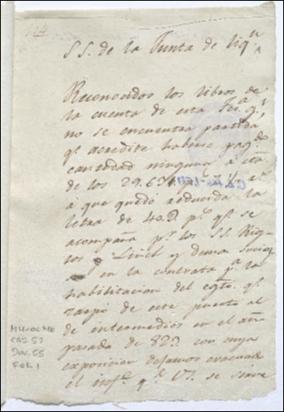 SS. de la Junta de Liqn
Reconocidos los libros de
la cuenta de esta Tesa
no se encuentra partida
qe acredite haberse pagdo
cantidad ninguna á cta
de los 29.63
á que quedó reducida la
letra de 40.D ps qe se
acompaña pr los SS. Rig
los y Linch y demas
en la contrata pa la
habilitacion del
zarpó de este puerto al
de intermedios en el año
pasado de 823 con cuya
exposicion dejamos evacuado
el infe qe VS. se sirve
MH-OL MB
CAJ. 57
DOC. 55
FOL. 1